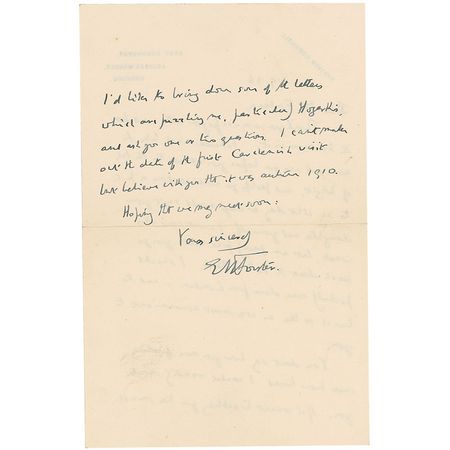 I'd like to bring down some of the letters
which are puzzling me, particularly Hogarth's,
and ask you one or two questions. I can't make
out the date of the first Carchemish visit
but believe with you that it was autumn 1910.
Hoping that we may meet soon:
Yours sincerely
EM Forster.